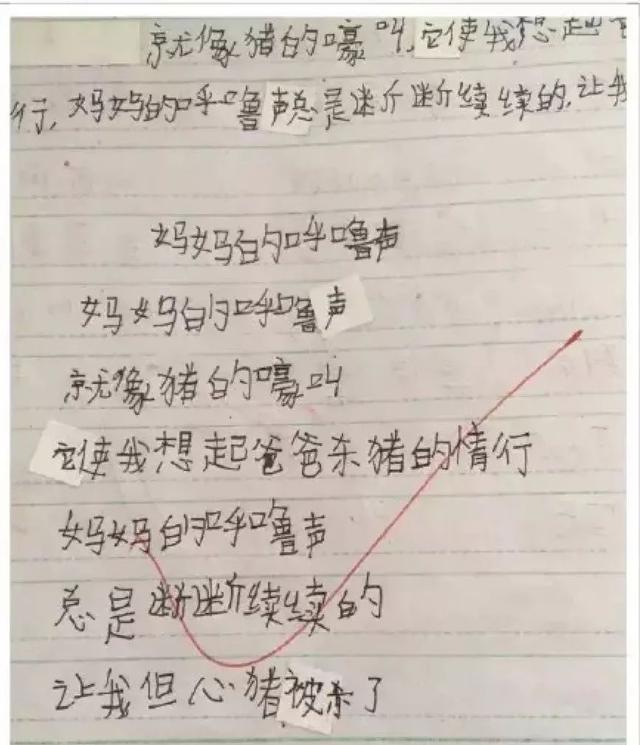 京尤像猪的嚎叫,它使我想起
行,妈妈的呼噜声总是断断续续的,让我
妈妈的呼噜声
妈妈的呼噜声
京尤像猪的嚎叫
它使我想起爸爸杀猪的情行
妈妈的呼噜声
总是断断续续的
让我但心猪被杀了